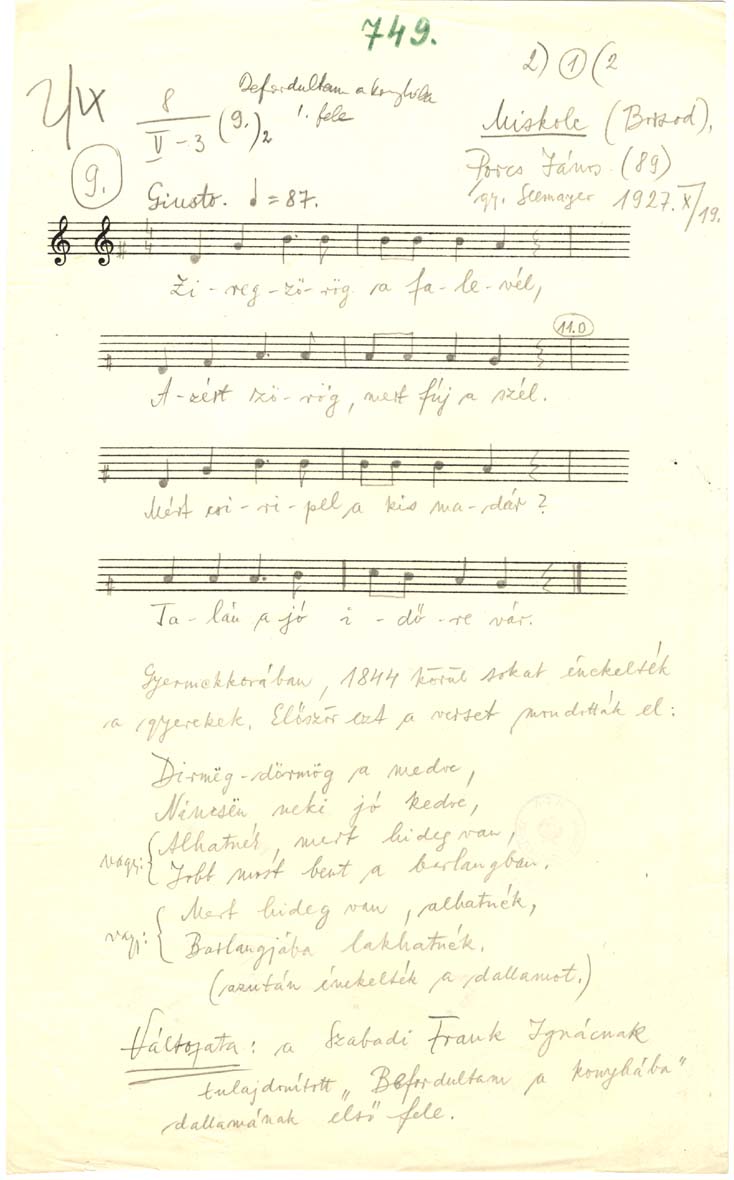 749.
2) 1 (2
2/IX
8
V-3 (9.)2
Befordultam a konyhába
1. fele
Miskolc (Borsod),
Porcs János (89)
gy. Seemayer 1927. X/19.
9.
Giusto. = 87.
Zi-reg-zö-rög a fa-le-vél,
11.0
A-zért zö-rög, mert fúj a szél.
Mért csi-ri-pel a kis ma-dár?
Ta-lán a jó i-dő-re vár.
Gyermekkorában, 1844 körül sokat énekelték
a gyerekek. Először ezt a verset mondották el:
Dirmëg-dörmög a medve,
Nincsën neki jó kedve,
Alhatnék, mert hideg van,
vagy: Jobb most bent a barlangban.
Mert hideg van, alhatnék,
vagy: Barlangjába lakhatnék.
(azután énekelték a dallamot.)
Változata: a Szabadi Frank Ignácnak
tulajdonított „Befordultam a konyhába"
dallamának első fele.